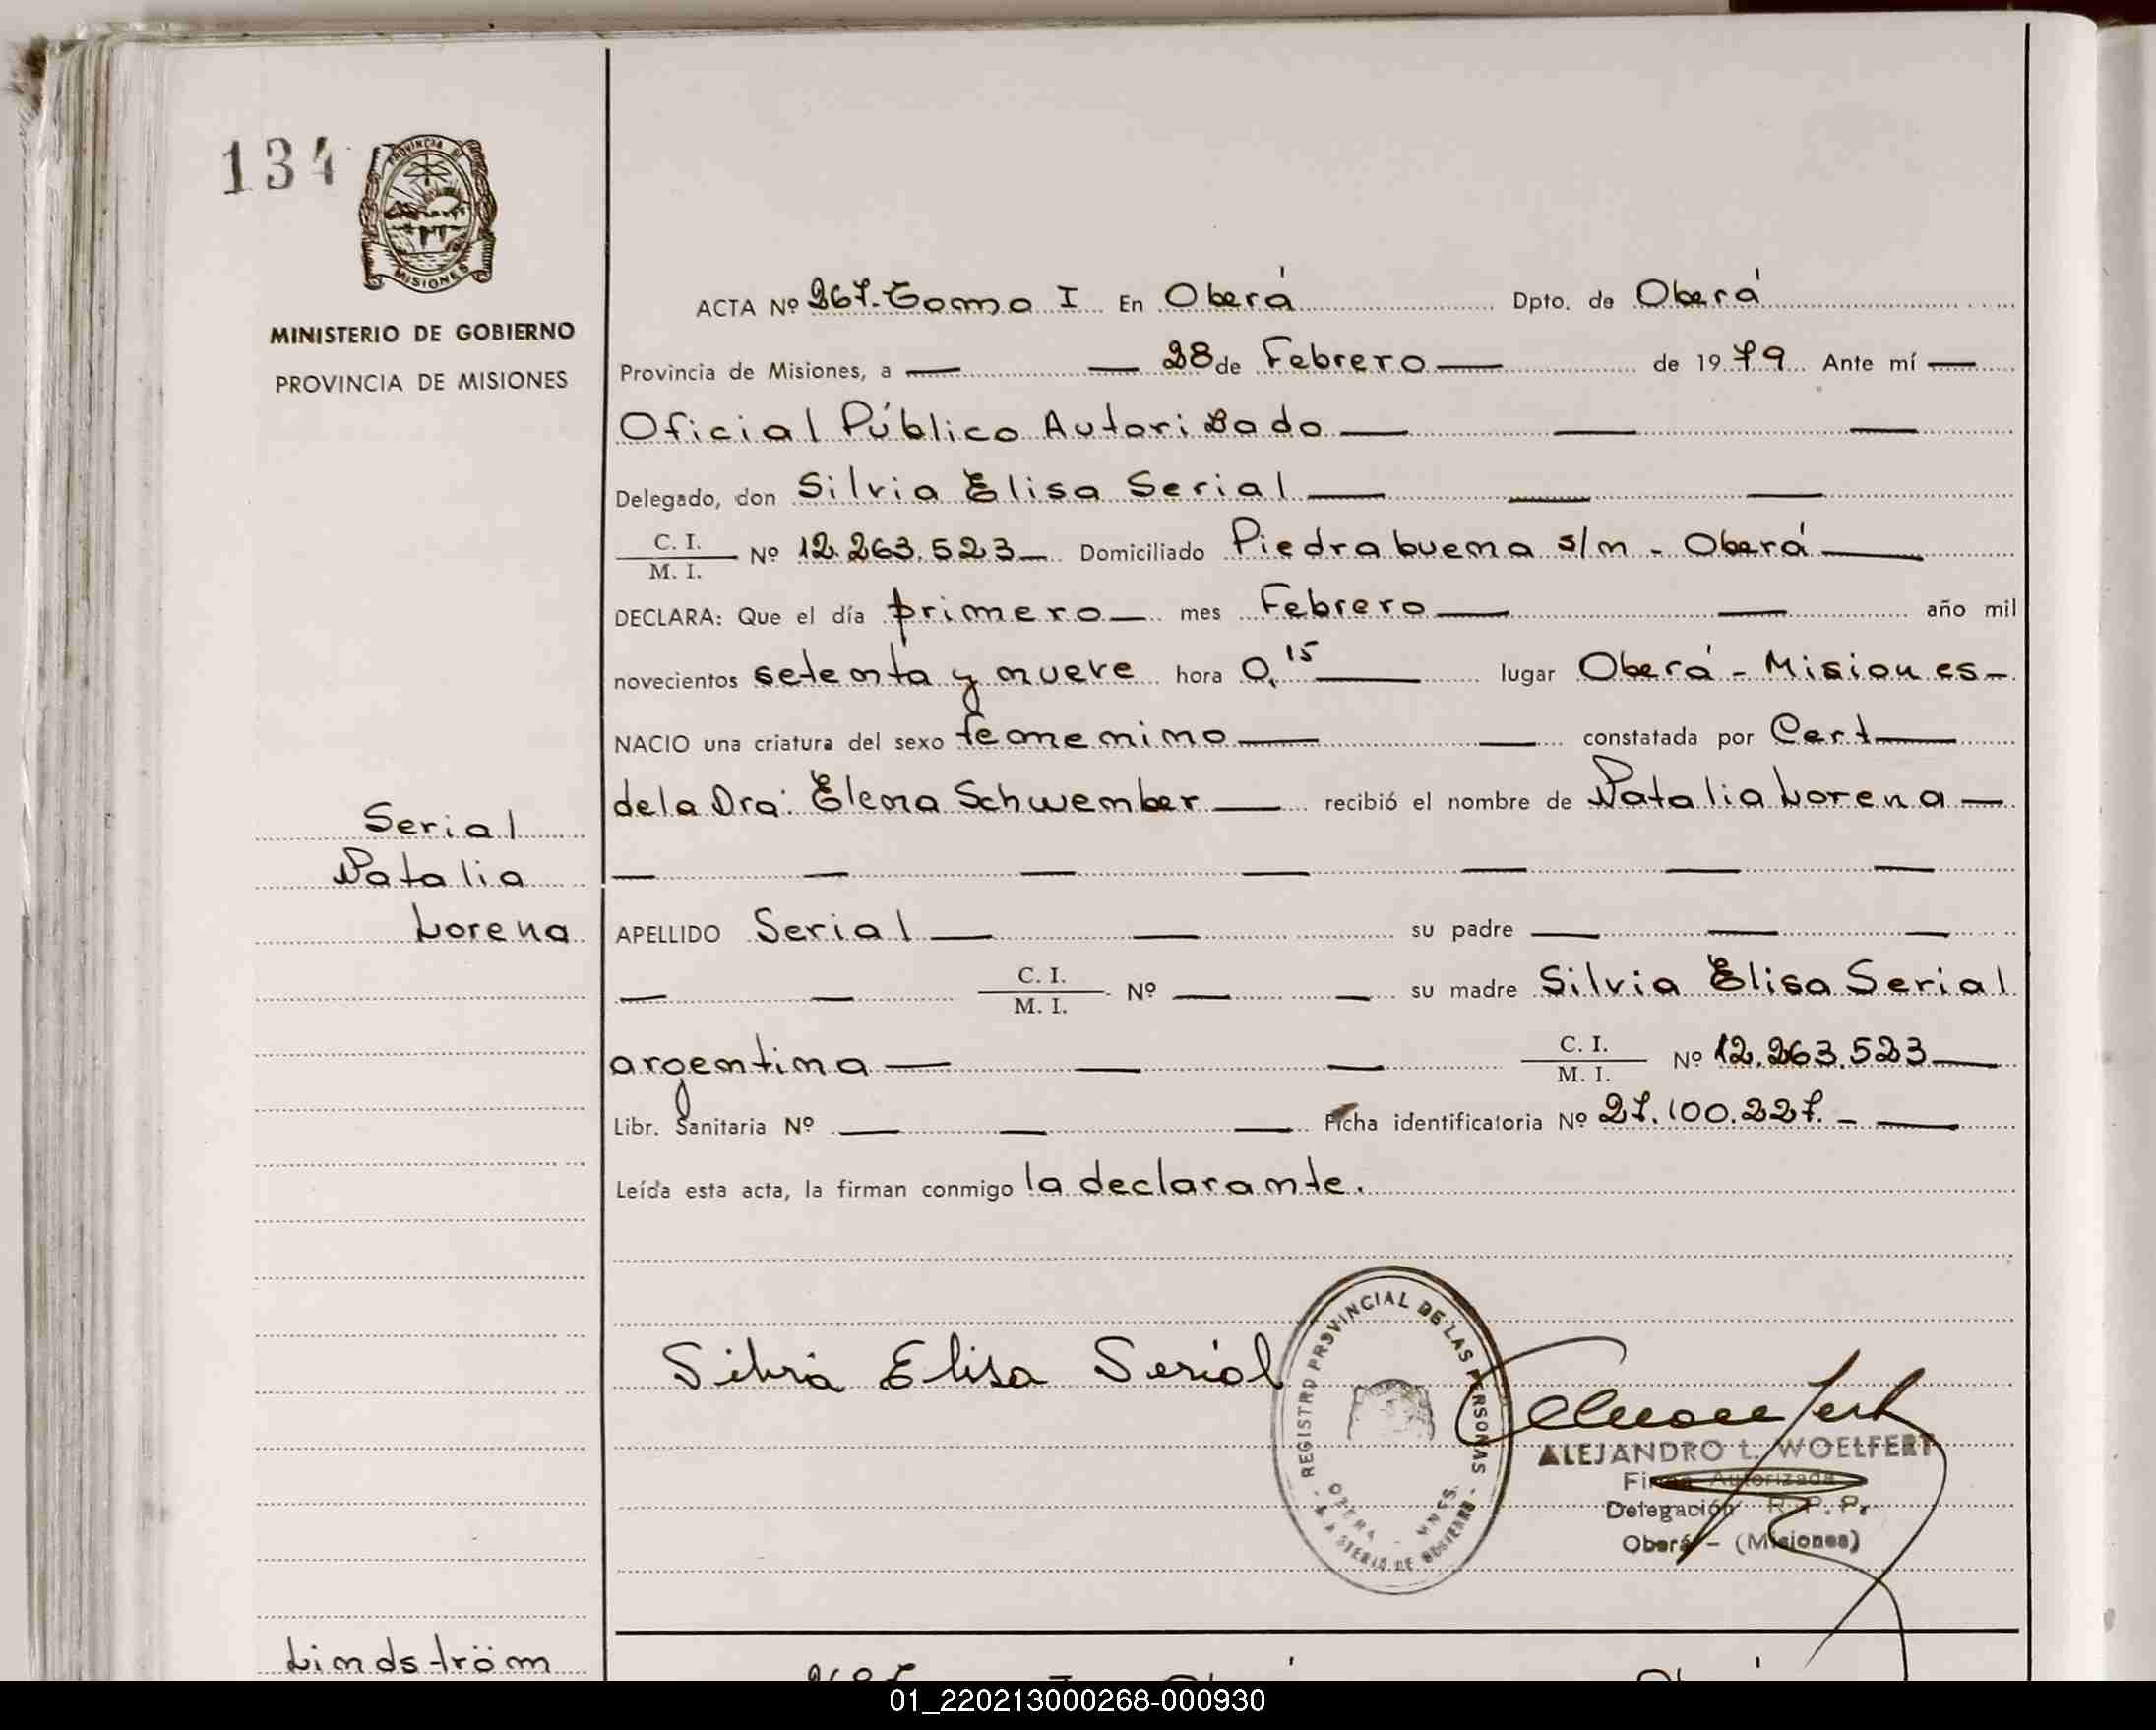 134
PROVINCIA DE
MISIONES
MINISTERIO DE GOBIERNO
PROVINCIA DE MISIONES
Serial
Natalia
Lorena
ACTA Nº 267. Tomo I En Oberá Dpto. de Oberá
Provincia de Misiones, a — — 28 de Febrero — de 1979 Ante mí —
Oficial Público Autorizado — — —
Delegado, don Silvia Elisa Serial — — —
C. I.
M. I. Nº 12.263.523 — Domiciliado Piedrabuena s/n - Oberá —
DECLARA: Que el día primero — mes Febrero — — año mil
novecientos setenta y nueve hora 0,15 — lugar Oberá - Misiones -
NACIO una criatura del sexo femenino — — constatada por Cert —
de la Dra: Elena Schwember — recibió el nombre de Natalia Lorena —
— — — — — — —
APELLIDO Serial — — su padre — — —
— — C. I.
M. I. Nº — — su madre Silvia Elisa Serial
argentina — — — C. I.
M. I. Nº 12.263.523 —
Libr. Sanitaria Nº — — — Ficha identificatoria Nº 27.100.227. - —
Leída esta acta, la firman conmigo la declarante.
Silvia Elisa Serial
REGISTRO PROVINCIAL DE LAS PERSONAS
OBERA - MNES.
DE GOBIERNO
ALEJANDRO L. WOELFERT
Firma Autorizada
Delegación R. P. P.
Oberá - (Misiones)
Lindström
01_220213000268-000930